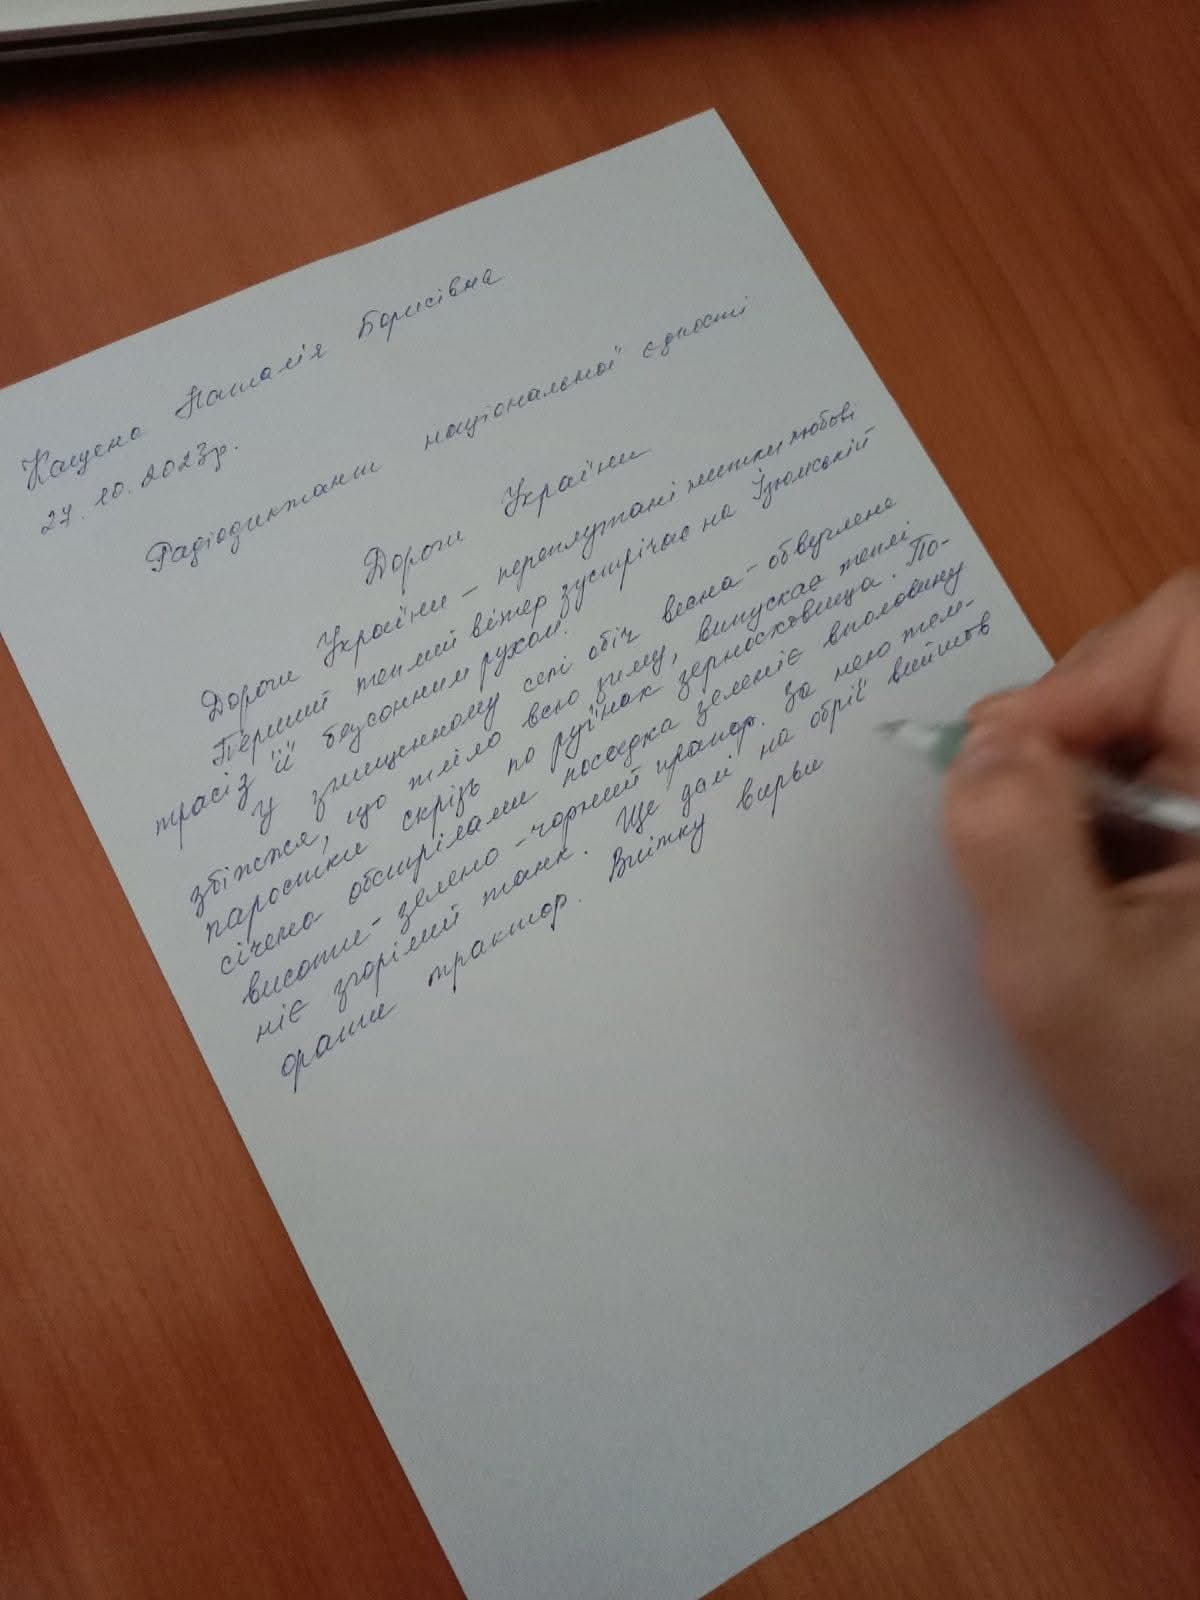 Кащена Наталія Борисівна
27.10.2023р.
Радіодиктант національної єдності
Дороги України
Дороги України – переплутані нитки любові
Перший теплий вітер зустрічає на Ізюмській
трасі з її безсонним рухом.
У знищеному селі обіч весна – обвуглене
збіжжя, що тліло всю зиму, випускає теплі
паростки скрізь по руїнах зерносховища. По-
січена обстрілами посадка зеленіє вполовину
висоти – зелено-чорний прапор. За нею тем-
ніє згорілий танк. Ще далі на обрії вийшов
орати трактор. Влітку вирви